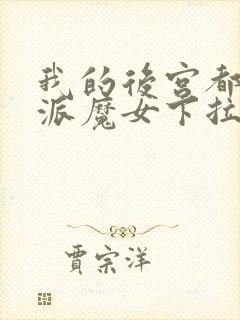 我的後宮都
派魔女卞拉
賈宗洋